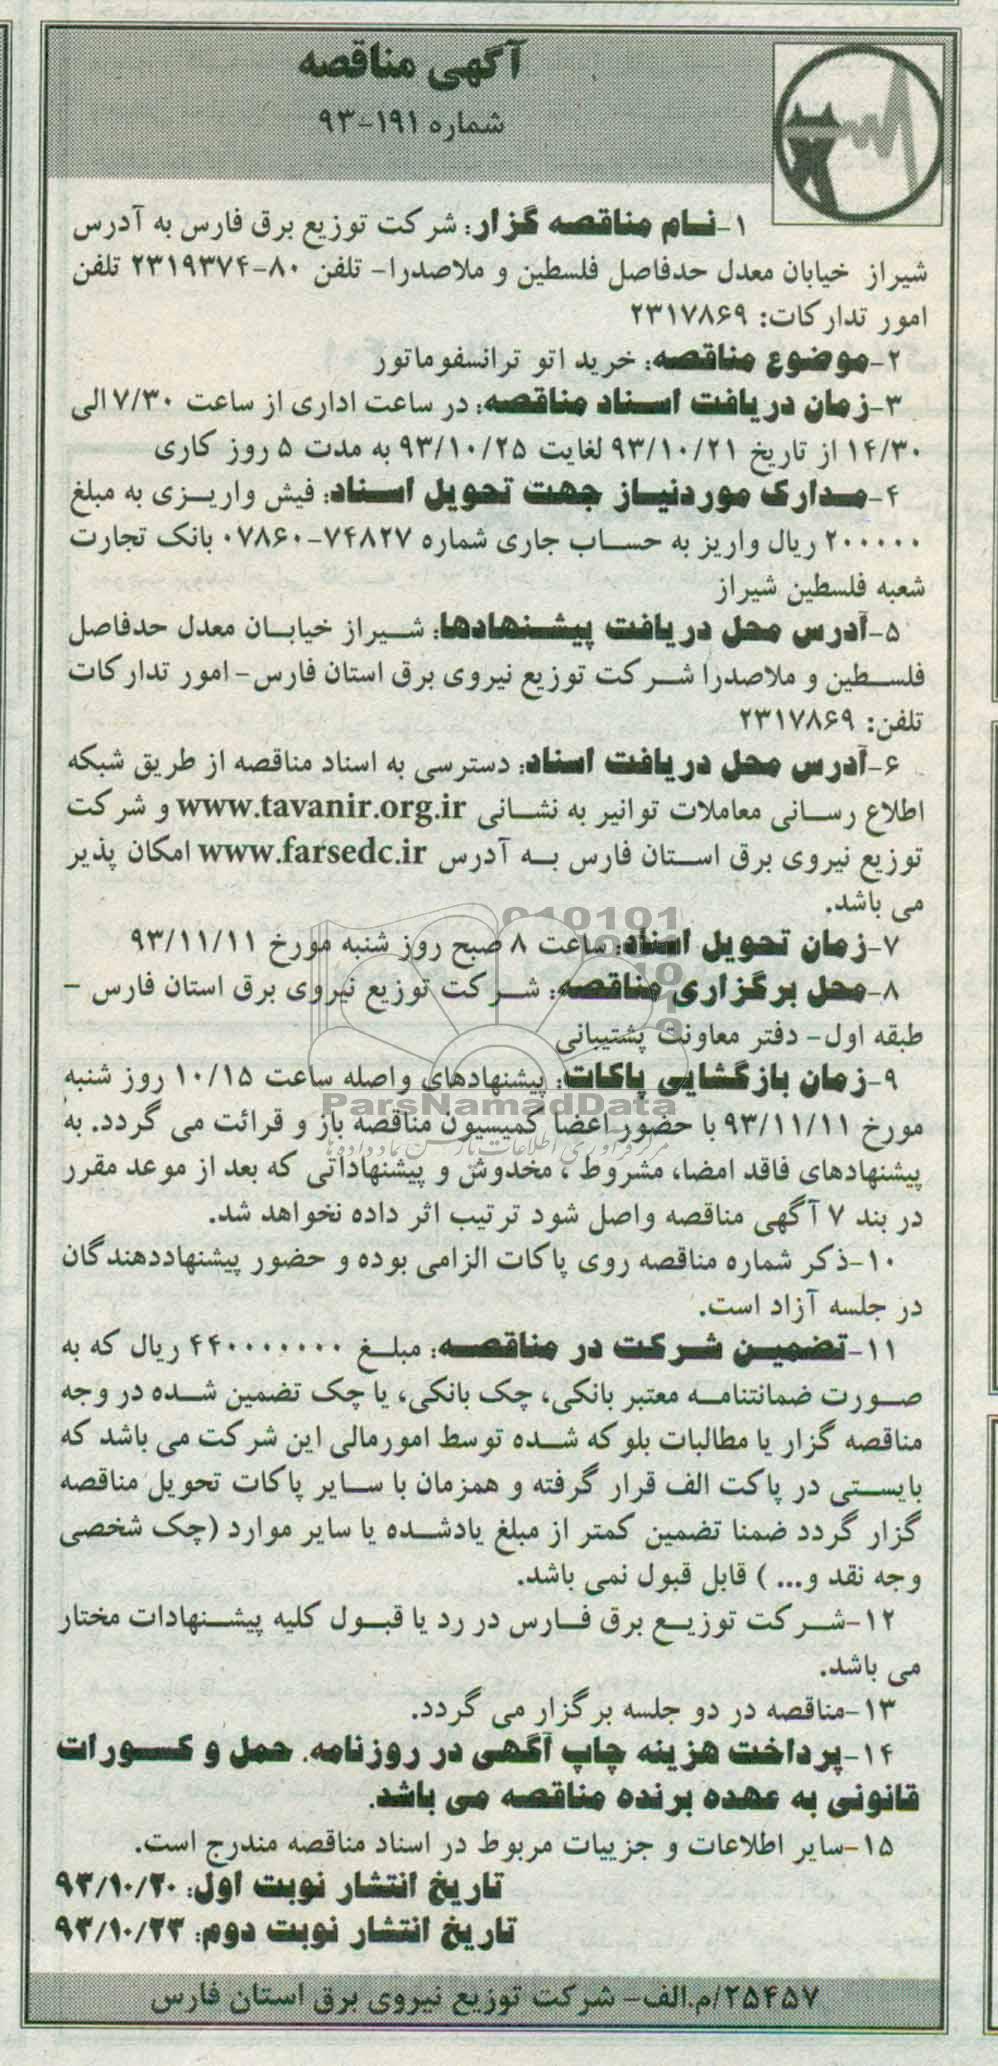 آگهی مناقصه
شماره ۱۹۱-۹۳
۱-نام مناقصه گزار: شرکت توزیع برق فارس به آدرس
شیراز خیابان معدل حدفاصل فلسطین و ملاصدرا- تلفن ۸۰-۲۳۱۹۳۷۴ تلفن
امور تدارکات: ۲۳۱۷۸۶۹
۲-موضوع مناقصه: خرید اتو ترانسفوماتور
۳-زمان دریافت اسناد مناقصه: در ساعت اداری از ساعت ۷/۳۰ الی
۱۴/۳۰ از تاریخ ۹۳/۱۰/۲۱ لغایت ۹۳/۱۰/۲۵ به مدت ۵ روز کاری
۴-مدارک موردنیاز جهت تحویل اسناد: فیش واریزی به مبلغ
۲۰۰۰۰۰ ریال واریز به حساب جاری شماره ۷۴۸۲۷-۰۷۸۶۰ بانک تجارت
شعبه فلسطین شیراز
۵-آدرس محل دریافت پیشنهادها: شیراز خیابان معدل حدفاصل
فلسطین و ملاصدرا شرکت توزیع نیروی برق استان فارس- امور تدارکات
تلفن: ۲۳۱۷۸۶۹
۶-آدرس محل دریافت اسناد: دسترسی به اسناد مناقصه از طریق شبکه
اطلاع رسانی معاملات توانیر به نشانی www.tavanir.org.ir و شرکت
توزیع نیروی برق استان فارس به آدرس www.farsedc.ir امکان پذیر
می باشد.
۷-زمان تحویل اسناد: ساعت ۸ صبح روز شنبه مورخ ۹۳/۱۱/۱۱
۸-محل برگزاری مناقصه: شرکت توزیع نیروی برق استان فارس -
طبقه اول- دفتر معاونت پشتیبانی
۹-زمان بازگشایی پاکات: پیشنهادهای واصله ساعت ۱۰/۱۵ روز شنبه
ParsNamadData
مورخ ۹۳/۱۱/۱۱ با حضور اعضا کمیسیون مناقصه باز و قرائت می گردد. به
پیشنهادهای فاقد امضا، مشروط ، مخدوش و پیشنهاداتی که بعد از موعد مقرر
در بند ۷ آگهی مناقصه واصل شود ترتیب اثر داده نخواهد شد.
۱۰-ذکر شماره مناقصه روی پاکات الزامی بوده و حضور پیشنهاددهندگان
در جلسه آزاد است.
۱۱-تضمین شرکت در مناقصه: مبلغ ۴۴۰۰۰۰۰۰۰ ریال که به
صورت ضمانتنامه معتبر بانکی، چک بانکی، یا چک تضمین شده در وجه
مناقصه گزار یا مطالبات بلو که شده توسط امورمالی این شرکت می باشد که
بایستی در پاکت الف قرار گرفته و همزمان با سایر پاکات تحویل مناقصه
گزار گردد ضمنا تضمین کمتر از مبلغ یادشده یا سایر موارد (چک شخصی
وجه نقد و... ) قابل قبول نمی باشد.
۱۲-شرکت توزیع برق فارس در رد یا قبول کلیه پیشنهادات مختار
می باشد.
۱۳-مناقصه در دو جلسه برگزار می گردد.
۱۴-پرداخت هزینه چاپ آگهی در روزنامه، حمل و کسورات
قانونی به عهده برنده مناقصه می باشد.
۱۵-سایر اطلاعات و جزییات مربوط در اسناد مناقصه مندرج است.
تاریخ انتشار نوبت اول: ۹۳/۱۰/۲۰
تاریخ انتشار نوبت دوم: ۹۳/۱۰/۲۳
۲۵۴۵۷/م.الف- شرکت توزیع نیروی برق استان فارس